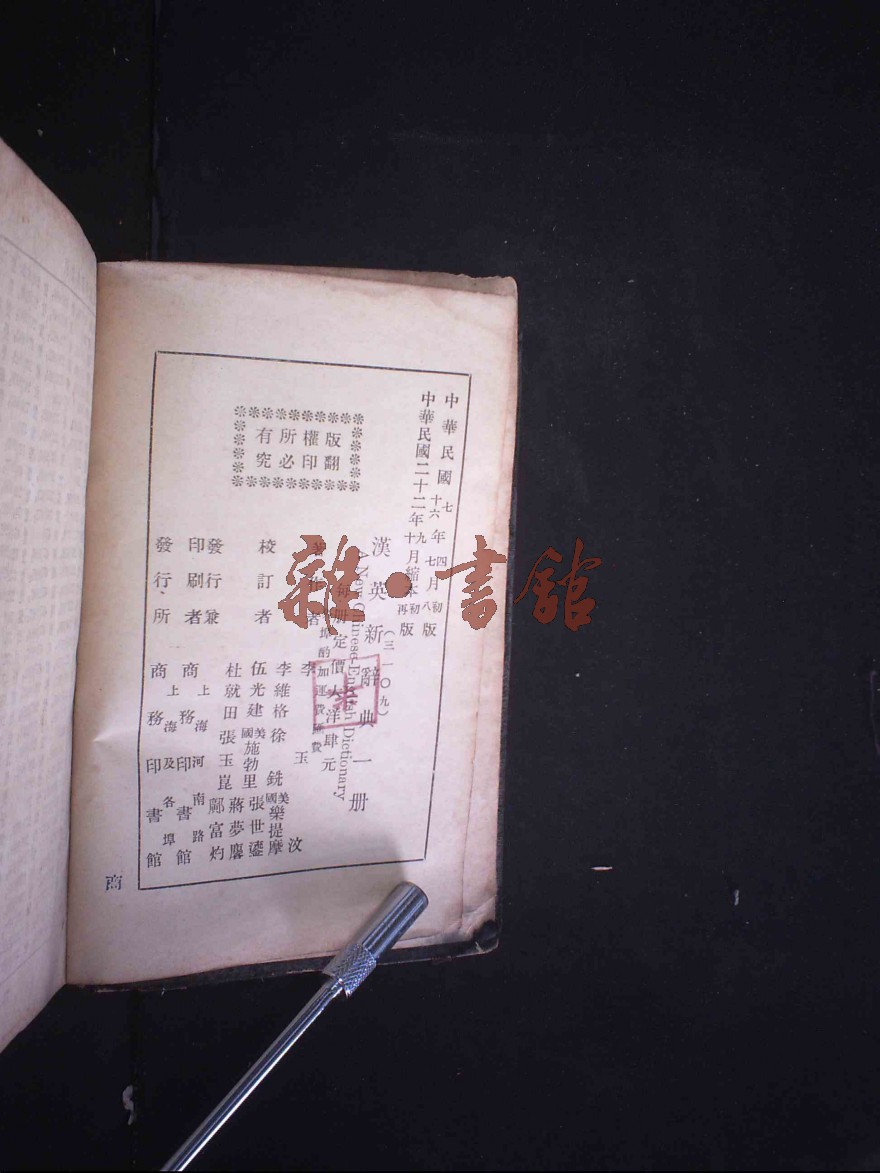 中華民國七年四月初版
十六年七月八版
中華民國二十二年九月縮本初版
十月縮本再版
(三一〇九)
漢英新辭典一册
A New Chinese-English Dictionary
每册定價大洋肆元
外埠酌加運費匯費
著作者 李玉汶
校訂者
李維格 徐銑 美國樂提摩
伍光建 美國施勃里 張世鎏
蔣夢麐
杜就田 張玉崑 鄺富灼
發行兼印刷者 上海河南路 商務印書館
發行所 上海及各埠 商務印書館
版權所有
翻印必究
商
雜·書館